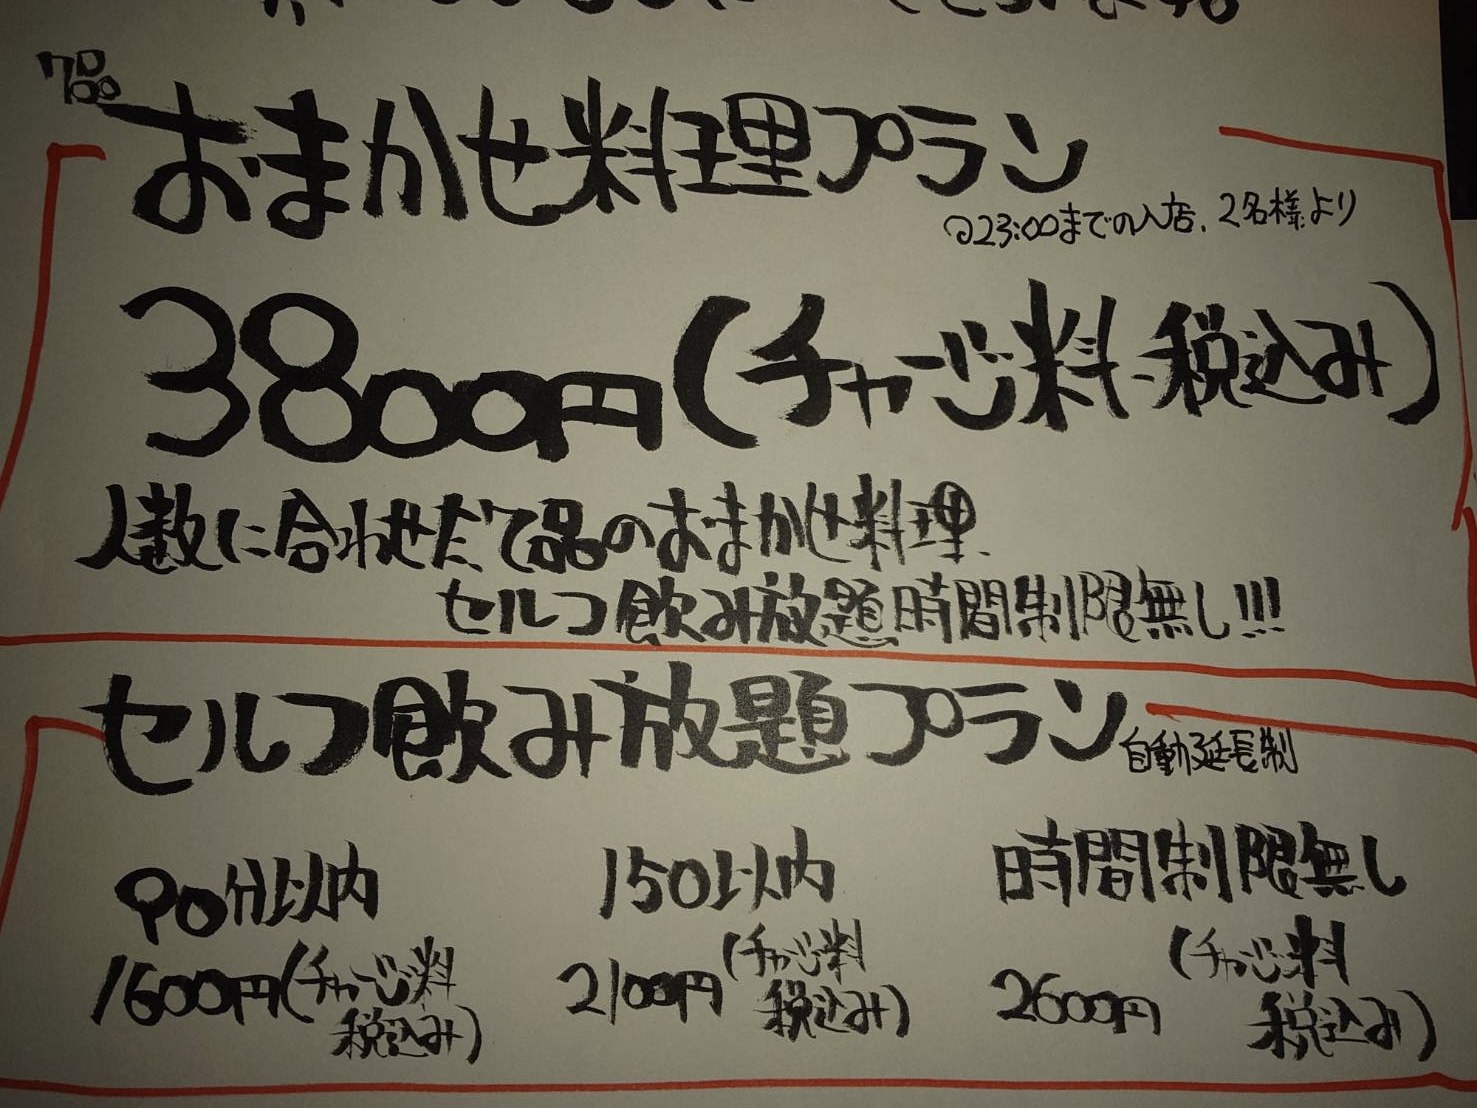 7品
おまかせ料理プラン
23:00までの入店、2名様より
3800円(チャージ料・税込み)
人数に合わせた7品のおまかせ料理、
セルフ飲み放題時間制限無し!!!
セルフ飲み放題プラン 自動延長制
90分以内 150以内 時間制限無し
1600円(チャージ料 2100円(チャージ料 2600円(チャージ料
税込み) 税込み) 税込み)